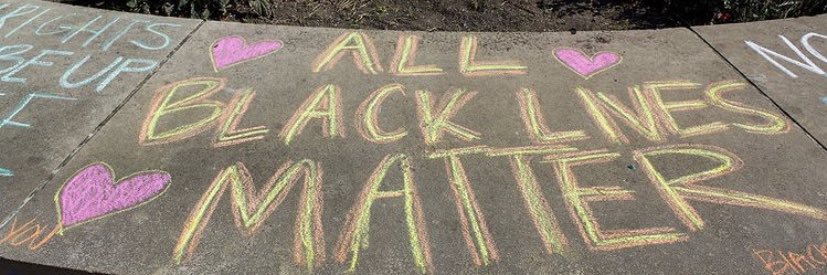 RIGHTS
BE UP
YOU
ALL
BLACK LIVES
MATTER
NO
BLAC